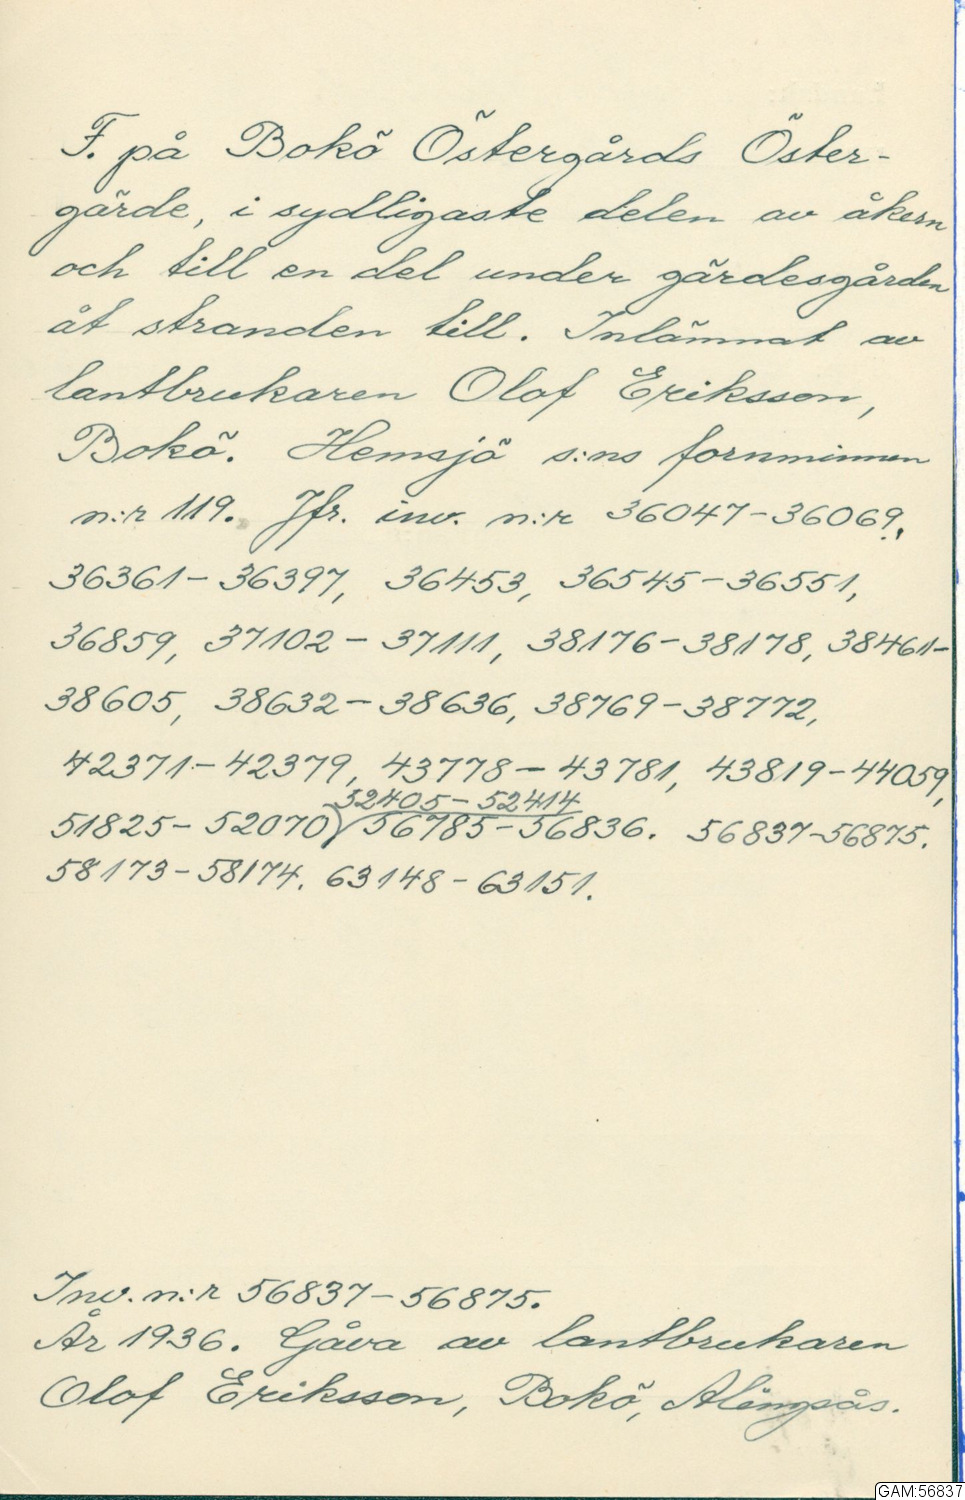 F. på Bokö Östergårds Öster-
gärde, i sydligaste delen av åkern
och till en del under gärdesgården
åt stranden till. Inlämnat av
lantbrukaren Olof Eriksson,
Bokö. Hemsjö s:ns fornminnen
n:r 119. Jfr. inv. n:r 36047-36069,
36361-36397, 36453, 36545-36551,
36859, 37102-37111, 38176-38178, 38461-
38605, 38632-38636, 38769-38772,
42371-42379, 43778-43781, 43819-44059,
52405-52414
51825-52070 56785-56836. 56837-56875.
58173-58174. 63148-63151.
Inv. n:r 56837-56875.
År 1936. Gåva av lantbrukaren
Olof Eriksson, Bokö, Alingsås.
GAM:56837